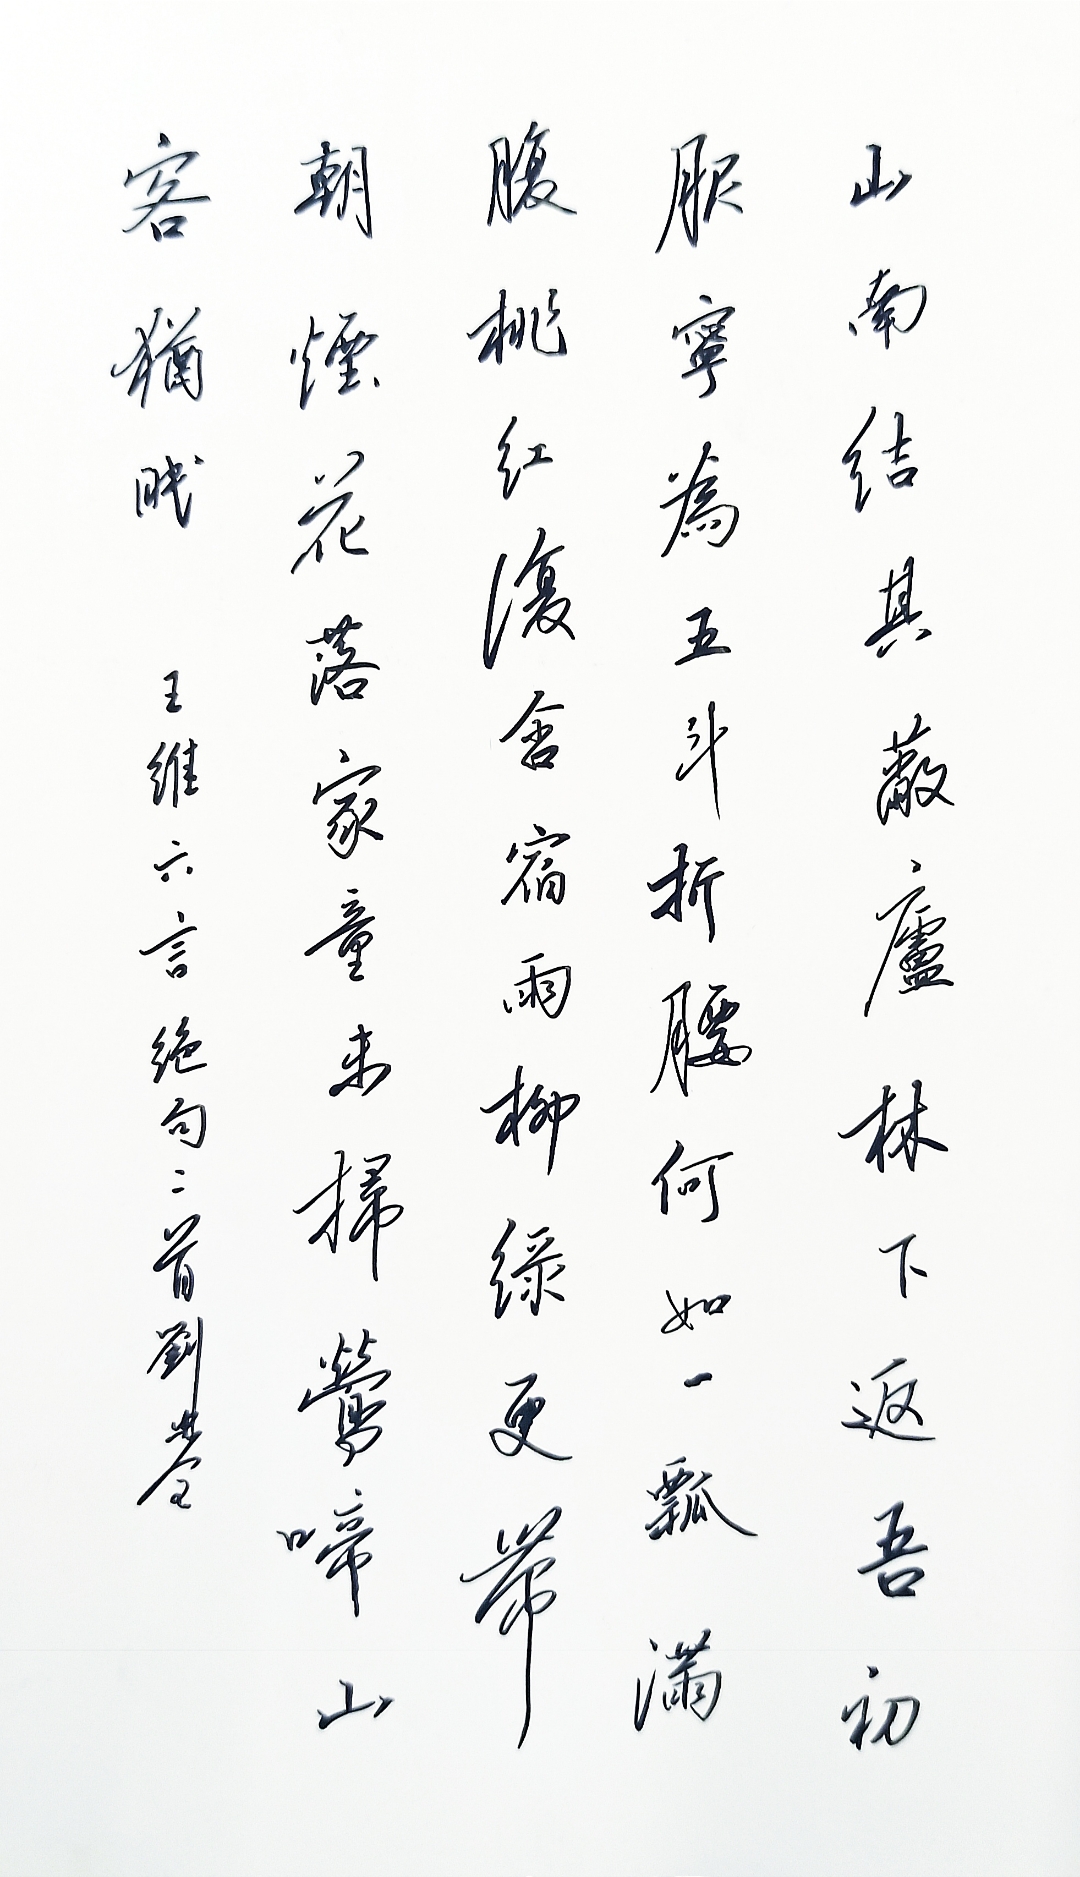 山南結其蔽廬林下返吾初
服寧為五斗折腰何如一瓢滿
腹桃紅復含宿雨柳綠更帶
朝煙花落家童未掃鶯啼山
客猶眠 王維六言絕句二首劉